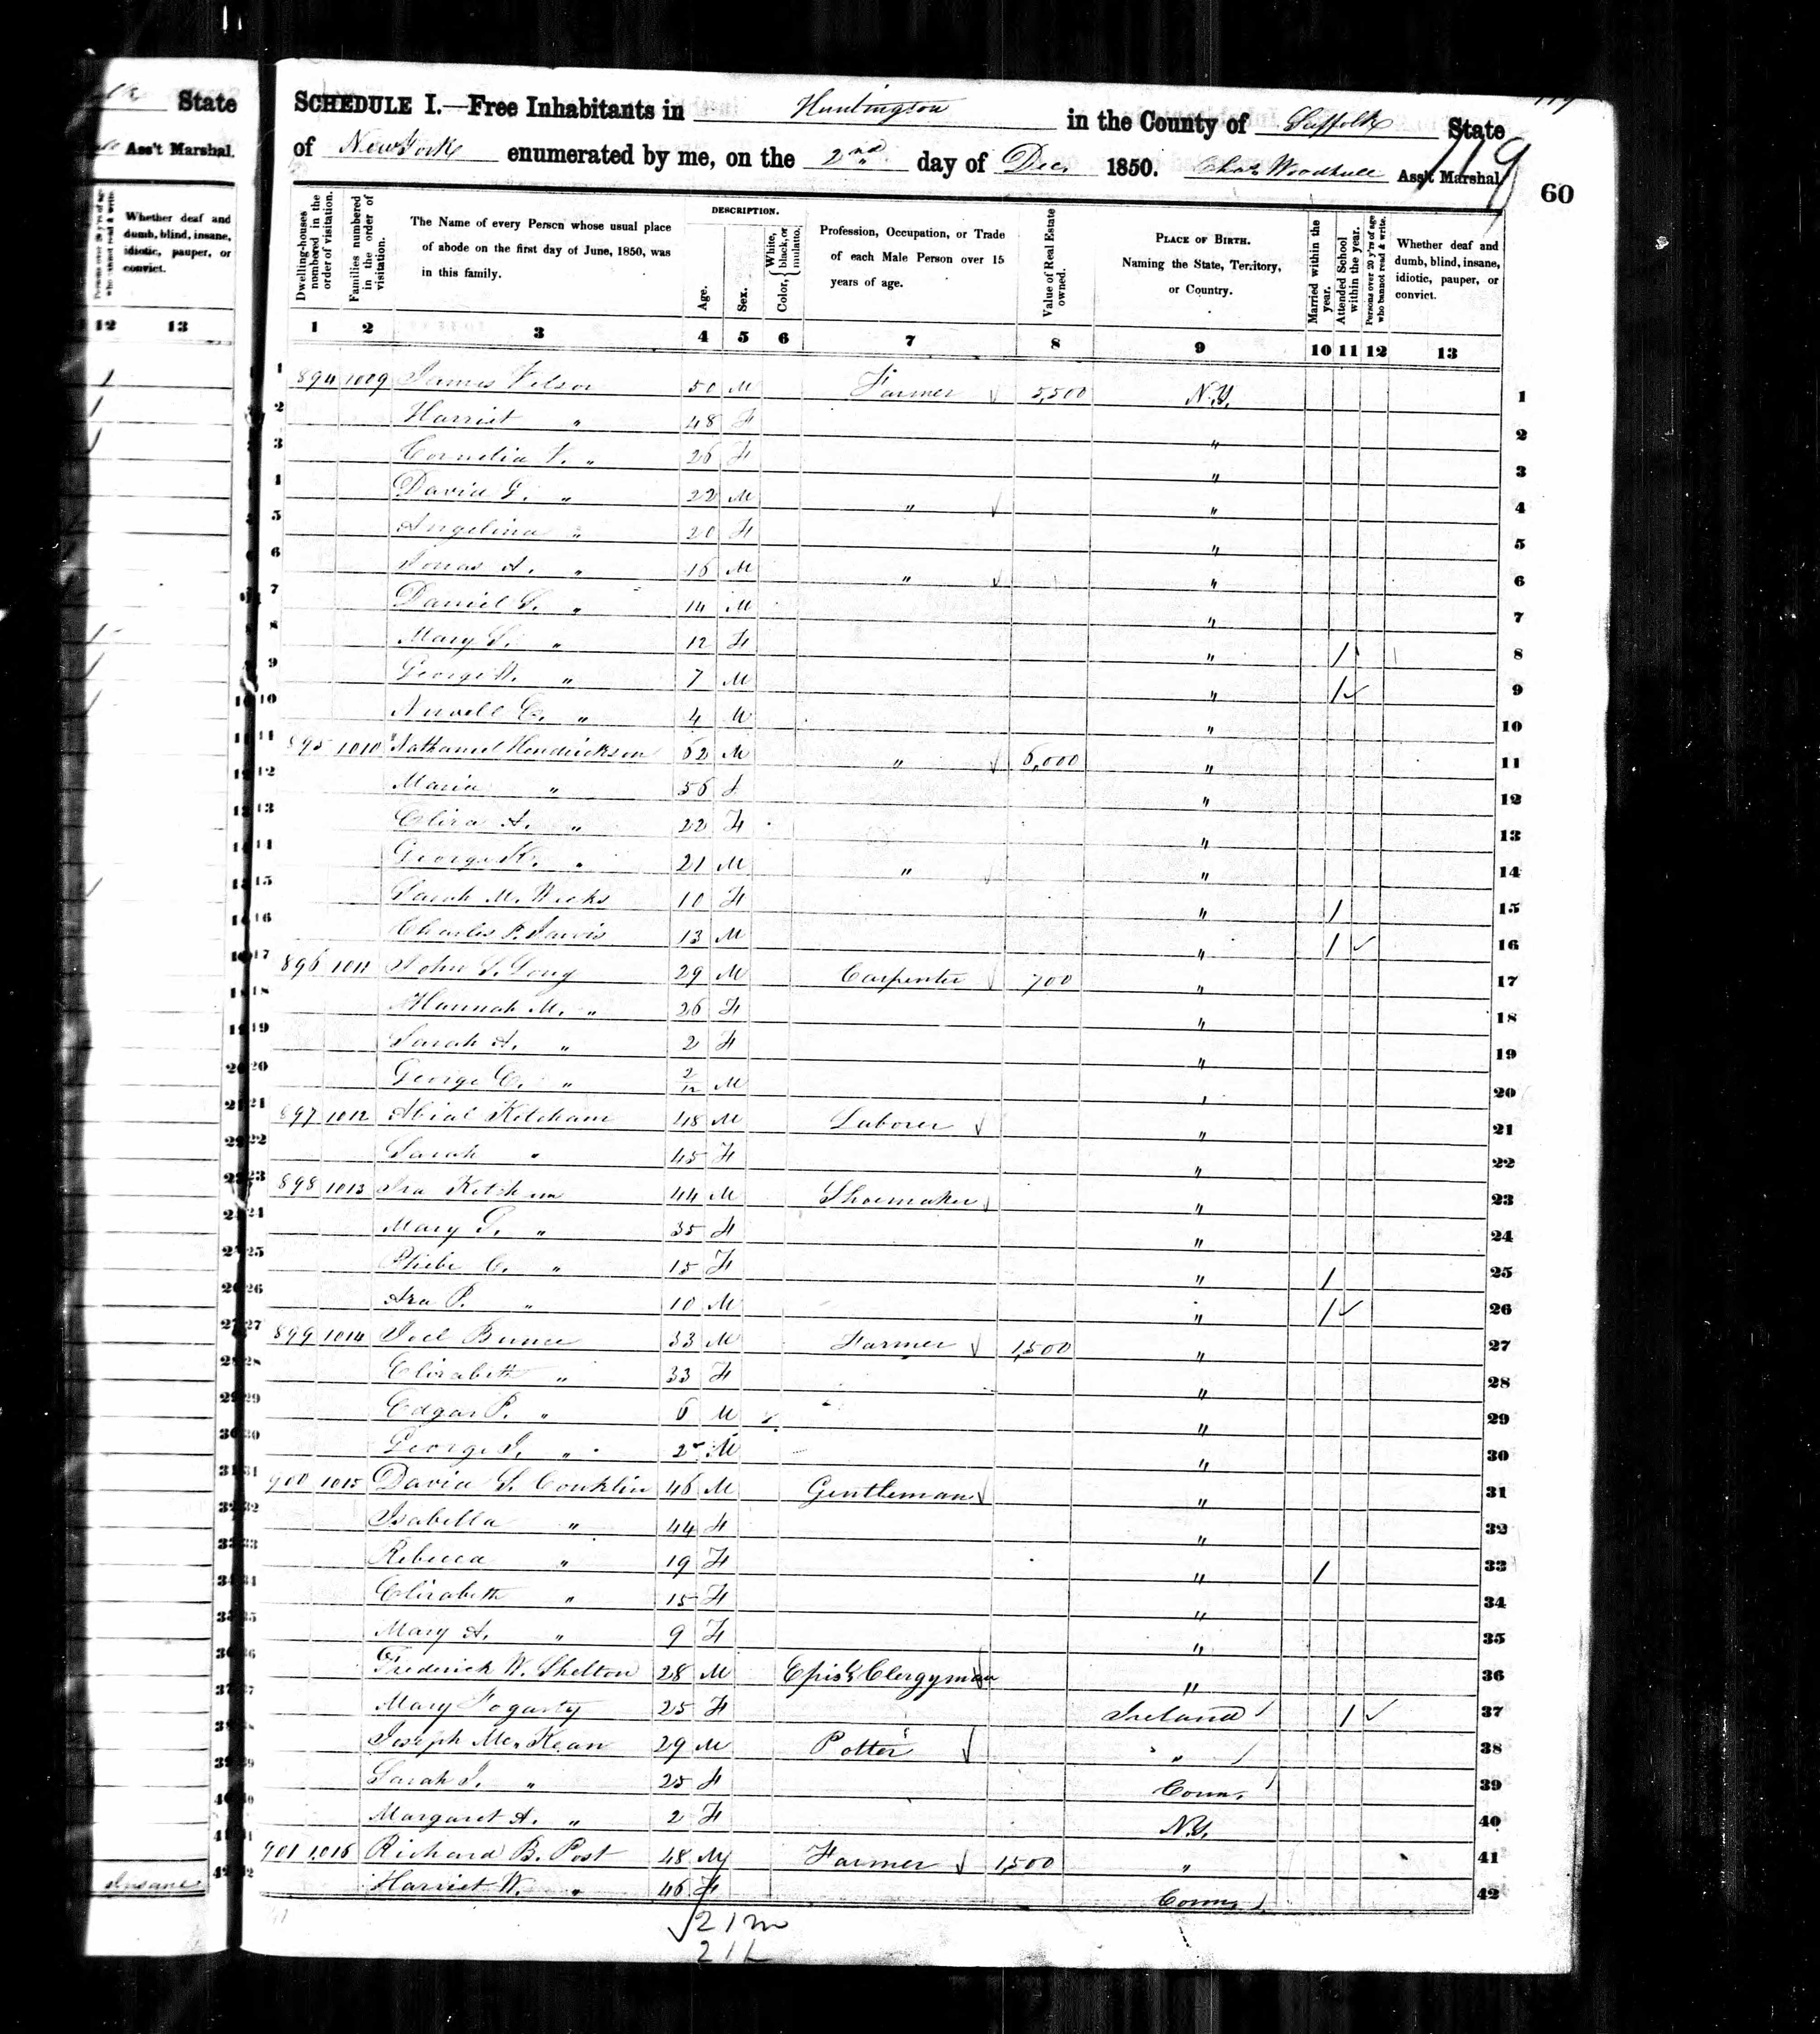 State
Ass't Marshal.
Persons over 20 y'rs of age who cannot read & write.
Whether deaf and dumb, blind, insane, idiotic, pauper, or convict.
12 13
Insane
119
SCHEDULE I.—Free Inhabitants in Huntington in the County of Suffolk State
of New York enumerated by me, on the 2nd day of Dec. 1850. Chas Woodhull Ass't Marshal.
119
60
Dwelling-houses numbered in the order of visitation.
Families numbered in the order of visitation.
The Name of every Person whose usual place of abode on the first day of June, 1850, was in this family.
DESCRIPTION.
Age.
Sex.
Color, { White, black, or mulatto.
Profession, Occupation, or Trade of each Male Person over 15 years of age.
Value of Real Estate owned.
PLACE OF BIRTH. Naming the State, Territory, or Country.
Married within the year.
Attended School within the year.
Persons over 20 y'rs of age who cannot read & write.
Whether deaf and dumb, blind, insane, idiotic, pauper, or convict.
1 2 3 4 5 6 7 8 9 10 11 12 13
1 894 1009 James 50 M Farmer 5,500 N.Y. 1
2 Harriet " 48 F " 2
3 Cornelia " 26 F " 3
4 David " 22 M " " 4
5 Angelina " 20 F " 5
6 A. " 16 M " " 6
7 Daniel S. " 14 M " 7
8 Mary " 12 F " / 8
9 George W. " 7 M " / ✓ 9
10 " 4 M " 10
11 895 1010 Nathaniel Hendrickson 62 M " 6,000 " 11
12 Maria " 56 F " 12
13 A. " 22 F " 13
14 George " 21 M " " 14
15 Sarah M. Weeks 10 F " / 15
16 Charles P. Jarvis 13 M " / ✓ 16
17 896 1011 John S. 29 M Carpenter 700 " 17
18 Hannah M. " 26 F " 18
19 Sarah A. " 2 F " 19
20 George C. " 2/12 M " 20
21 897 1012 Abial Ketcham 48 M Laborer " 21
22 Sarah " 45 F " 22
23 898 1013 Ira Ketcham 44 M Shoemaker " 23
24 Mary " 35 F " 24
25 Phebe C. " 15 F " / 25
26 Ira P. " 10 M " / ✓ 26
27 899 1014 Joel Bunce 33 M Farmer 1,500 " 27
28 Elizabeth " 33 F " 28
29 Edgar P. " 6 M " 29
30 George " 2 M " 30
31 900 1015 David S. Conklin 46 M Gentleman " 31
32 Isabella " 44 F " 32
33 Rebecca " 19 F " / 33
34 Elizabeth " 15 F " 34
35 Mary A. " 9 F " 35
36 Frederick W. Shelton 28 M Episl Clergyman " 36
37 Mary Fogarty 25 F Ireland / ✓ 37
38 Joseph McKean 29 M Potter " 38
39 Sarah J. " 25 F Conn. 39
40 Margaret A. " 2 F N.Y. 40
41 901 1016 Richard B. Post 48 M Farmer 1,500 " 41
42 Harriet W. " 46 F Conn. 42
21 m
21 f